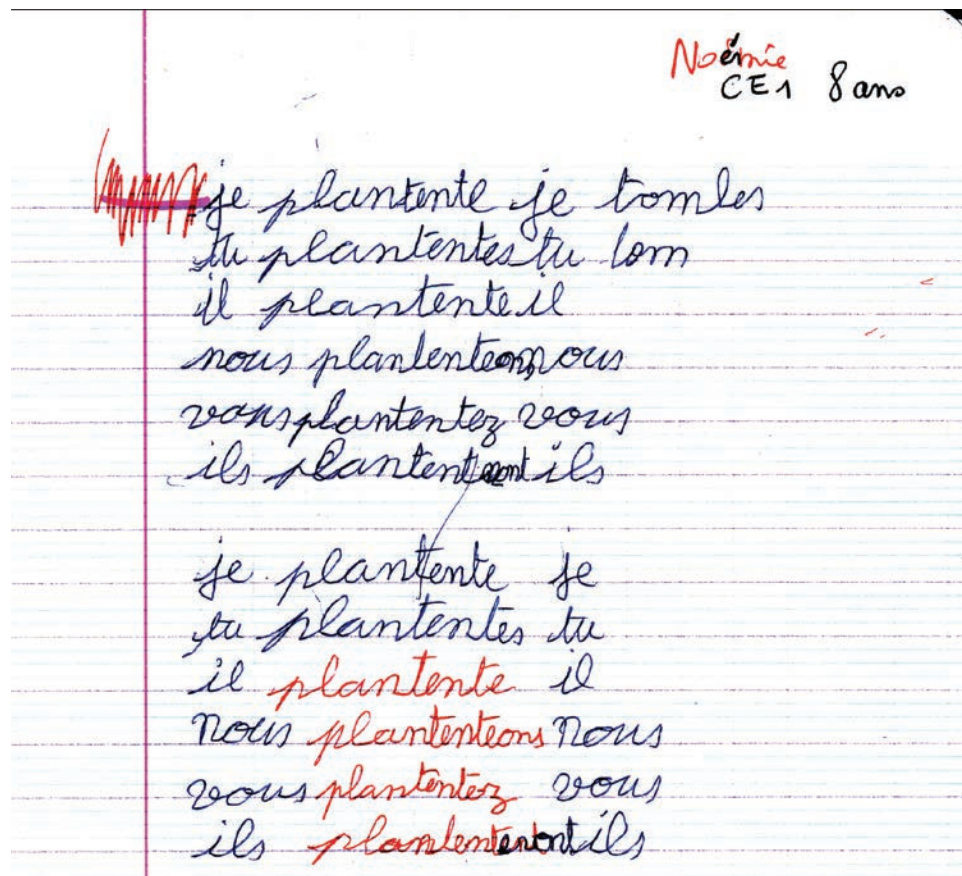 Noémie
CE1 8 ans
je plantente je tomles
tu plantentes tu tom
il plantente il
nous plantenteons nous
vous plantentez vous
ils plantentent ils
je plantente je
tu plantentes tu
il plantente il
nous plantenteons nous
vous plantentez vous
ils ils